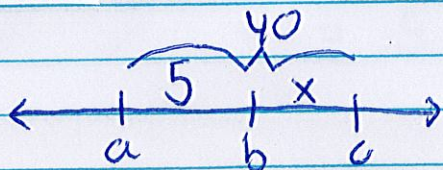 40
5 x
a b c